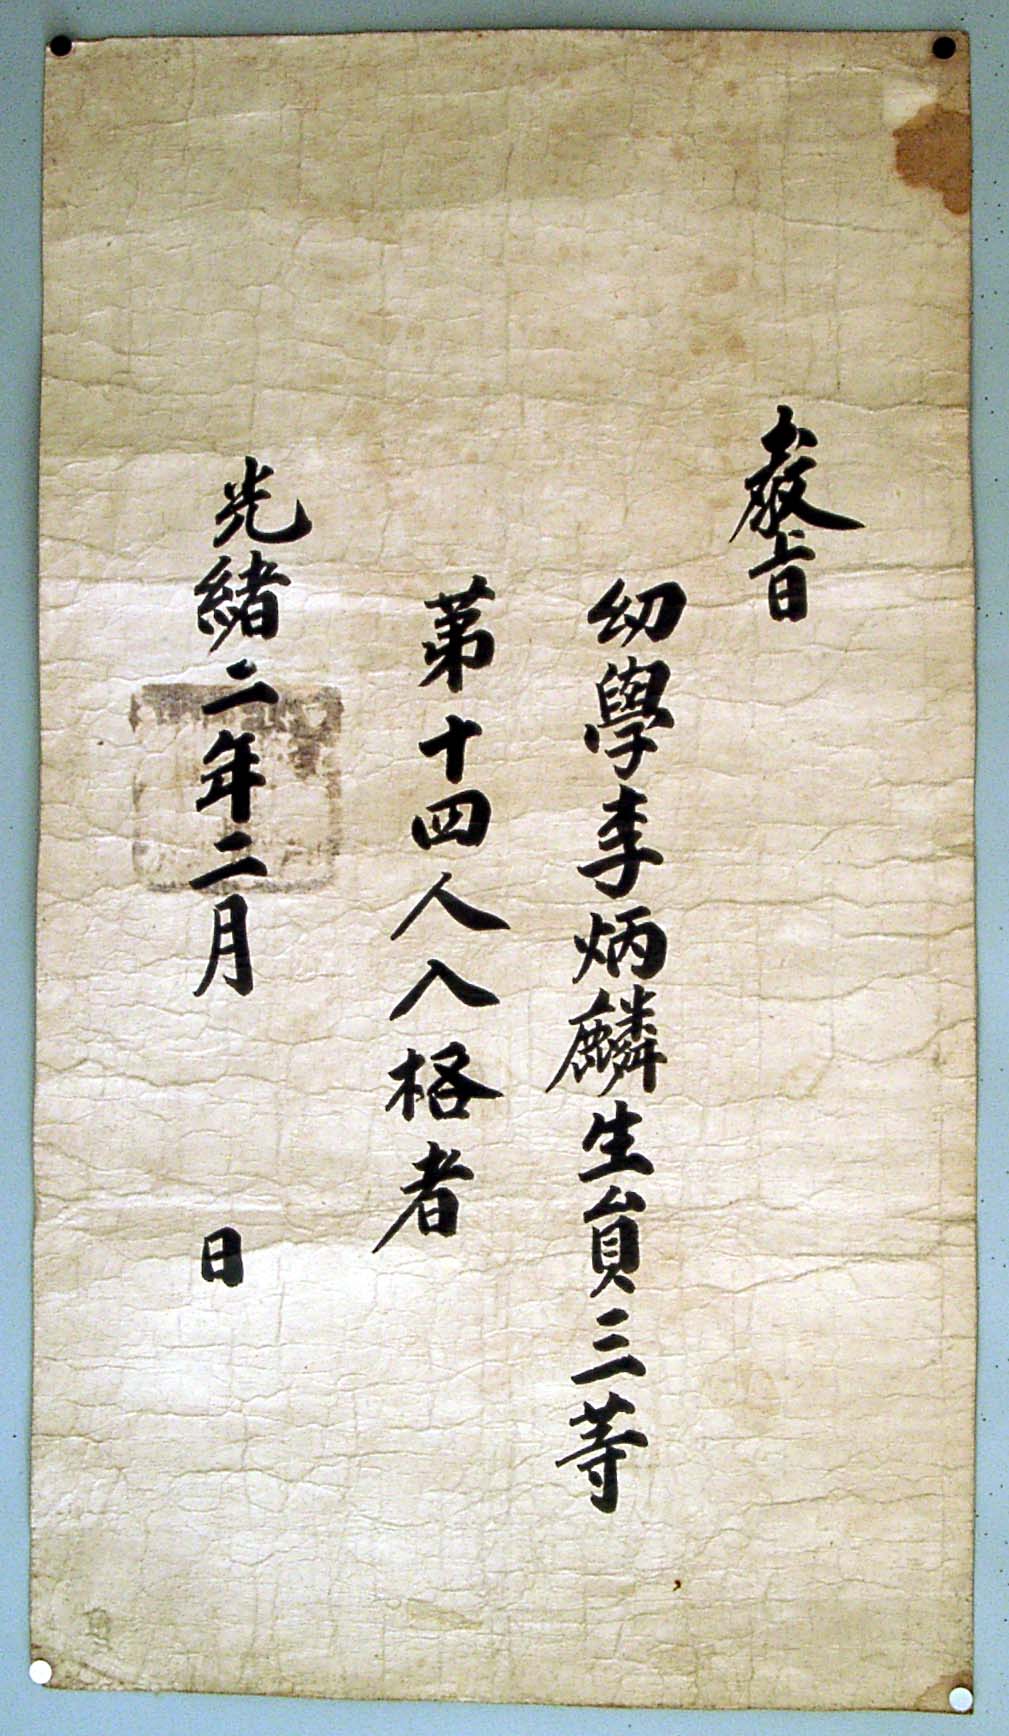 敎旨
幼學李炳麟生員三等
第十四人入格者
光緖二年二月 日